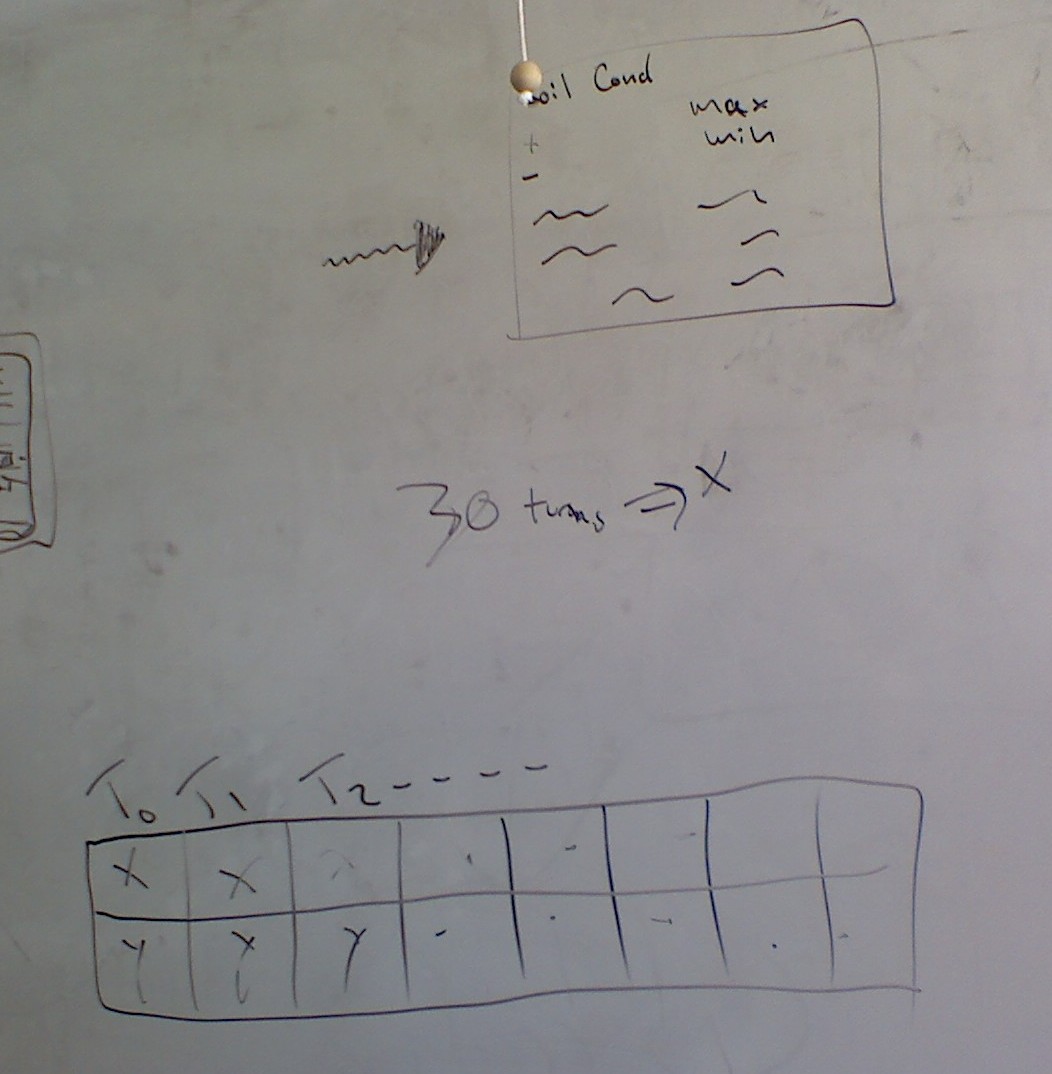 oil Cond
max
+ min
-
30 turns ⇒ X
T₀ T₁ T₂ - - - -
X X X · - -
Y Y Y - · - · -